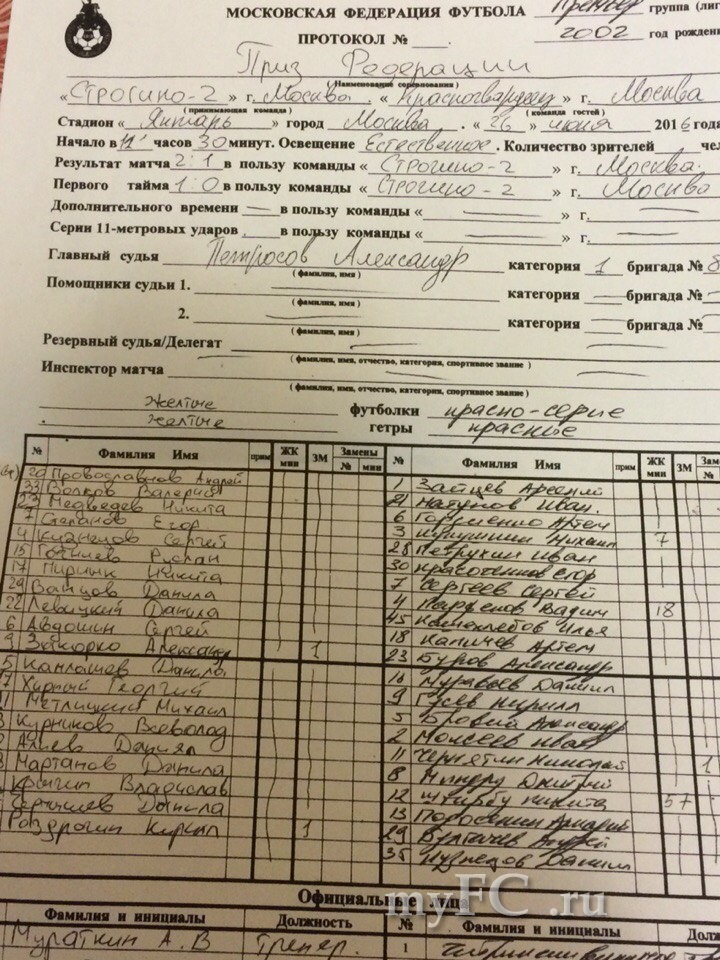 МОСКОВСКАЯ ФЕДЕРАЦИЯ ФУТБОЛА Премьер группа (лиг
ПРОТОКОЛ № 2002 год рожден
Приз Федерации
(Наименование соревнования)
«Строгино-2» г. Москва. «Красногвардеец» г. Москва
(принимающая команда) (команда гостей)
Стадион «Янтарь» город Москва. «26» июня 2016 года
Начало в 12 часов 30 минут. Освещение Естественное. Количество зрителей чел
Результат матча 2:1 в пользу команды «Строгино-2» г. Москва.
Первого тайма 1:0 в пользу команды «Строгино-2» г. Москва
Дополнительного времени — в пользу команды « — » г. —
Серии 11-метровых ударов — в пользу команды « — » г. —
Главный судья Петросов Александр категория 1 бригада № 8
(фамилия, имя)
Помощники судьи 1. — категория — бригада № —
(фамилия, имя)
2. — категория — бригада № —
(фамилия, имя)
Резервный судья/Делегат —
(фамилия, имя, отчество, категория, спортивное звание)
Инспектор матча —
(фамилия, имя, отчество, категория, спортивное звание)
желтые футболки красно-серые
желтые гетры красные
№ Фамилия Имя прим ЖК мин ЗМ Замены № мин № Фамилия Имя прим ЖК мин ЗМ Замены
20 Православнов Андрей 1 Зайцев Арсений
33 Волков Валерий 21 Иван
23 Медведев Никита 6 Артем
7 Степанов Егор 3 Михаил 7
4 Кузнецов Сергей 28 Петрухин Иван
15 Руслан 30 Егор
17 Никита 7 Сергеев Сергей
29 Данила 4 Парфенов Вадим 18
22 Левицкий Данила 45 Илья
6 Авдошин Сергей 18 Артем
9 Александр 1 23 Буров Александр
5 Данила 16 Муравьев Даниил
Георгий 9 Гусев Кирилл
Метлицкий Михаил 5 Александр
Курников Всеволод 2 Моисеев Иван
Алиев 11 Николай 1
Мартанов Данила 8 Дмитрий
Владислав 12 Никита 57
Данила 13
Кирилл 1 29
35 Кузнецов Даниил
Официальные лица
Фамилия и инициалы Должность № Фамилия и инициалы Долж
Мураткин А. В Тренер. 1
myFC .ru